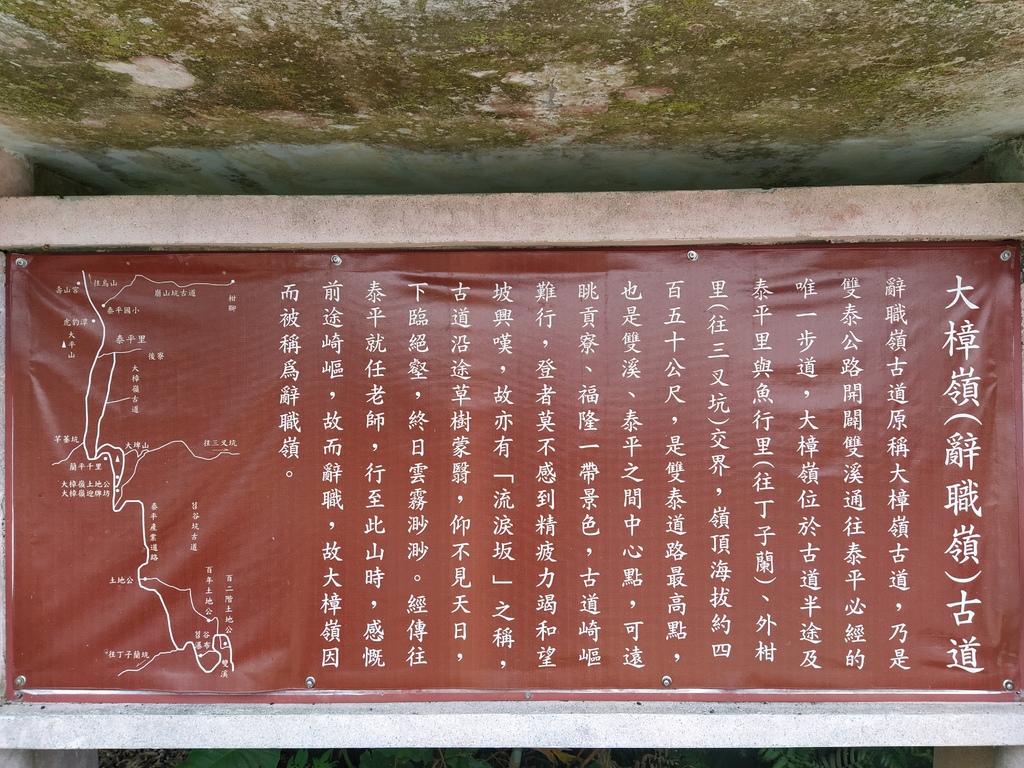 大樟嶺(辭職嶺)古道
辭職嶺古道原稱大樟嶺古道，乃是
雙泰公路開闢雙溪通往泰平必經的
唯一步道，大樟嶺位於古道半途及
泰平里與魚行里(往丁子蘭)、外柑
里(往三叉坑)交界，嶺頂海拔約四
百五十公尺，是雙泰道路最高點，
也是雙溪、泰平之間中心點，可遠
眺貢寮、福隆一帶景色，古道崎嶇
難行，登者莫不感到精疲力竭和望
坡興嘆，故亦有「流淚坂」之稱，
古道沿途草樹蒙翳，仰不見天日，
下臨絕壑，終日雲霧渺渺。經傳往
泰平就任老師，行至此山時，感慨
前途崎嶇，故而辭職，故大樟嶺因
而被稱為辭職嶺。
往烏山
壽山宮
崩山坑古道
柑腳
泰平國小
虎豹潭
大平山
泰平里
後寮
大樟嶺古道
芊蓁坑
大埤山
往三叉坑
蘭平千里
大樟嶺土地公
大樟嶺迎牌坊
泰平產業道路
舊谷坑古道
土地公
百年土地公
百二階土地公
舊谷瀑布
雙溪
往丁子蘭坑